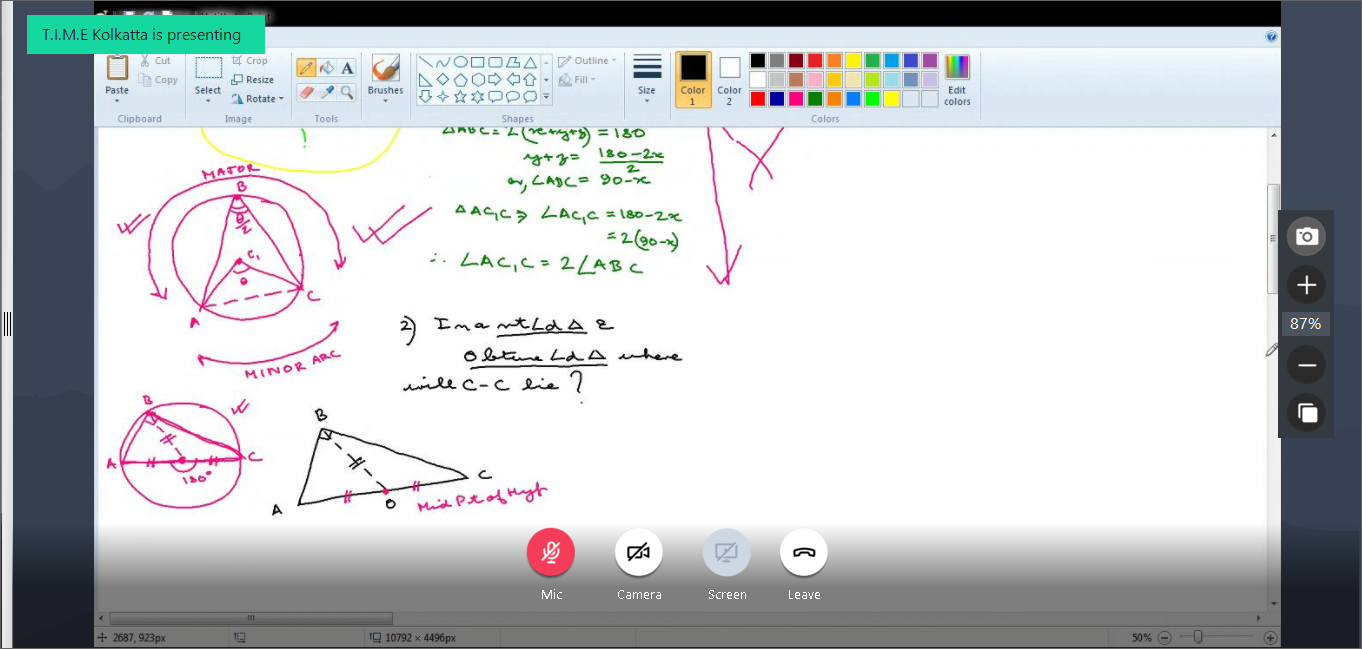 T.I.M.E Kolkatta is presenting
Paste
Cut
Copy
Clipboard
Select
Crop
Resize
Rotate
Image
A
Tools
Brushes
Shapes
Outline
Fill
Size
Color 1
Color 2
Colors
Edit colors
ΔABC = 2(x+y+z) = 180
y+z = 180-2x
2
or, ∠ABC = 90-x
ΔAC₁C ⇒ ∠AC₁C = 180-2x
= 2(90-x)
∴ ∠AC₁C = 2∠ABC
!
MAJOR
B
θ/2
C₁
θ
A
C
MINOR ARC
2) In a rt∠d Δ &
Obtuse∠d Δ where
will C-C lie?
B
A
C
180°
B
A
O
C
Mid Pt of Hyp
87%
Mic
Camera
Screen
Leave
2687, 923px
10792 × 4496px
50%